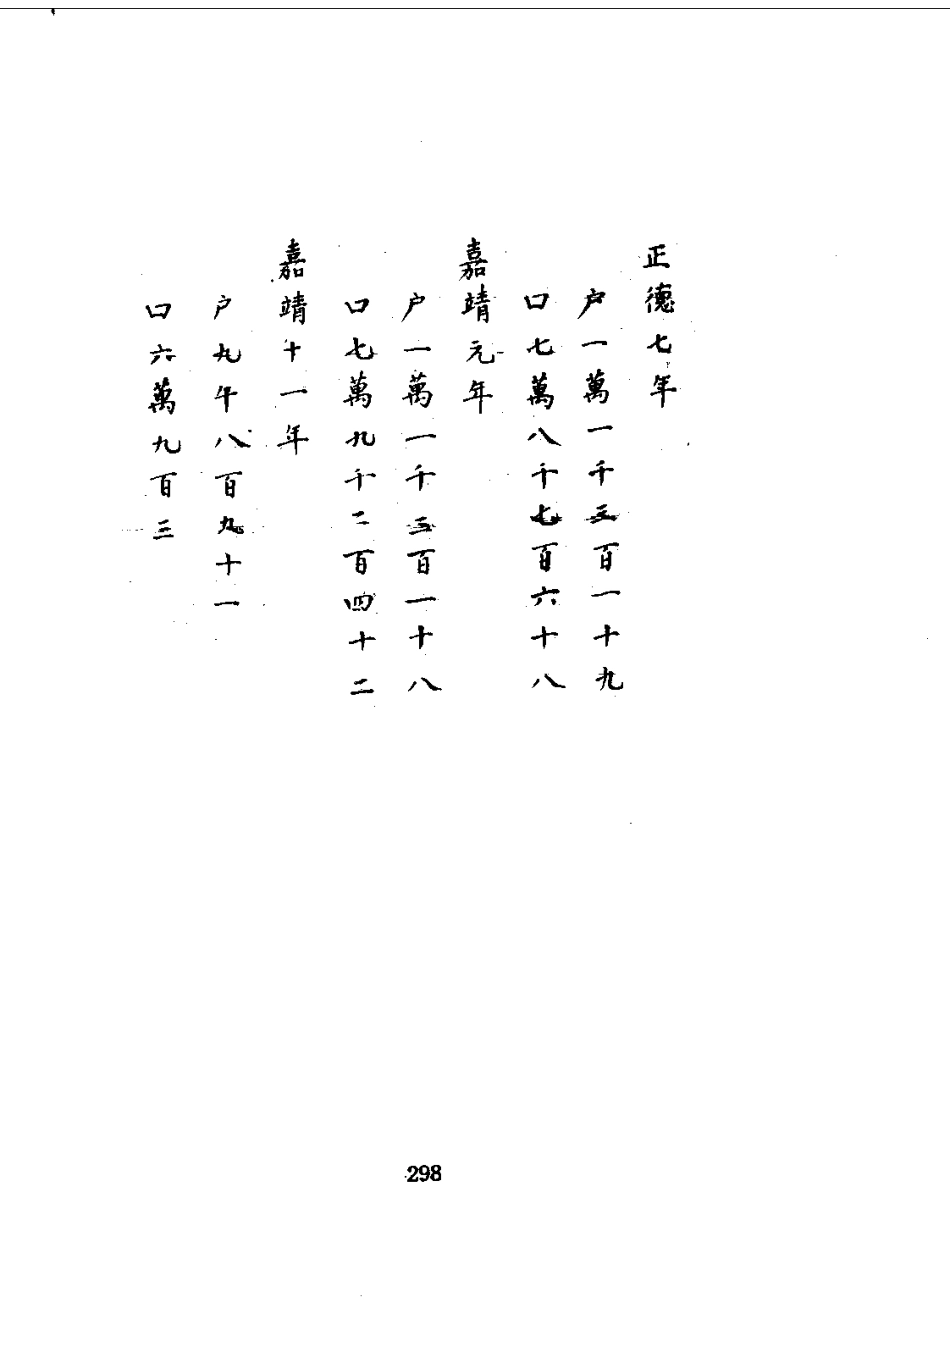 正德七年
户一萬一千三百一十九
口七萬八千七百六十八
嘉靖元年
户一萬一千三百一十八
口七萬九千二百四十二
嘉靖十一年
户九千八百九十一
口六萬九百三
298